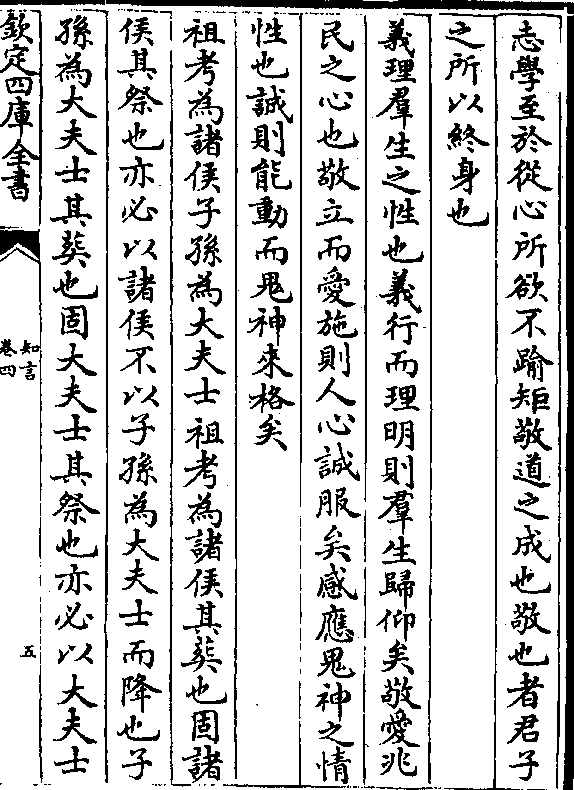 志學至於從心所欲不踰矩敬道之成也敬也者君子
之所以終身也
義理羣生之性也義行而理明則羣生歸仰矣敬愛兆
民之心也敬立而愛施則人心誠服矣感應鬼神之情
性也誠則能動而鬼神來格矣
祖考為諸侯子孫為大夫士祖考為諸侯其葬也固諸
侯其祭也亦必以諸侯不以子孫為大夫士而降也子
孫為大夫士其葬也固大夫士其祭也亦必以大夫士
欽定四庫全書
知言
卷四
五